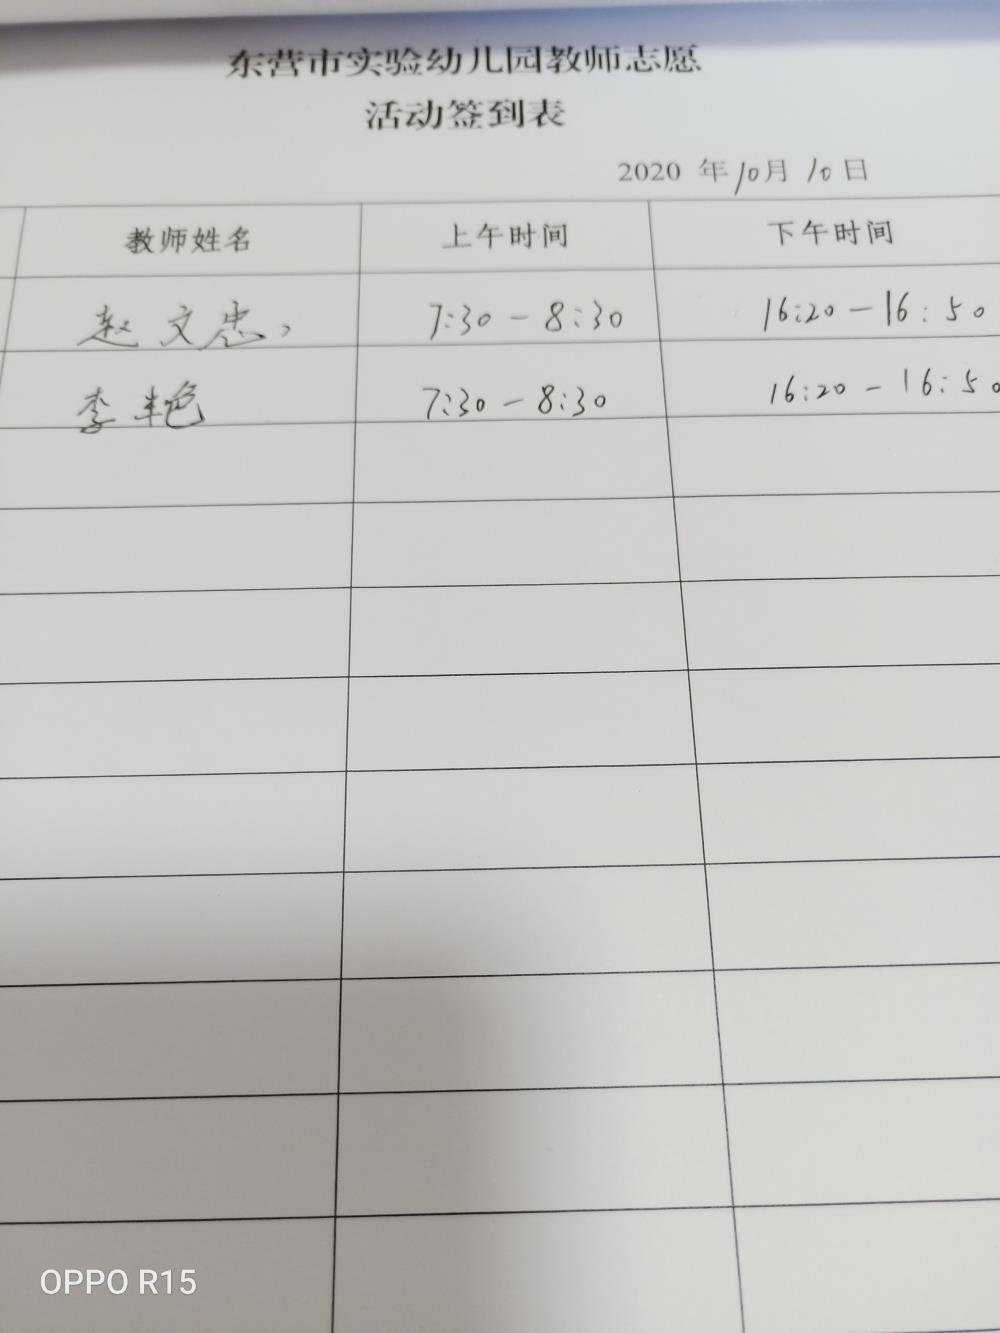 东营市实验幼儿园教师志愿
活动签到表
2020 年10月 10日
教师姓名 上午时间 下午时间
赵文忠 7:30-8:30 16:20-16:50
李艳 7:30-8:30 16:20-16:50
OPPO R15